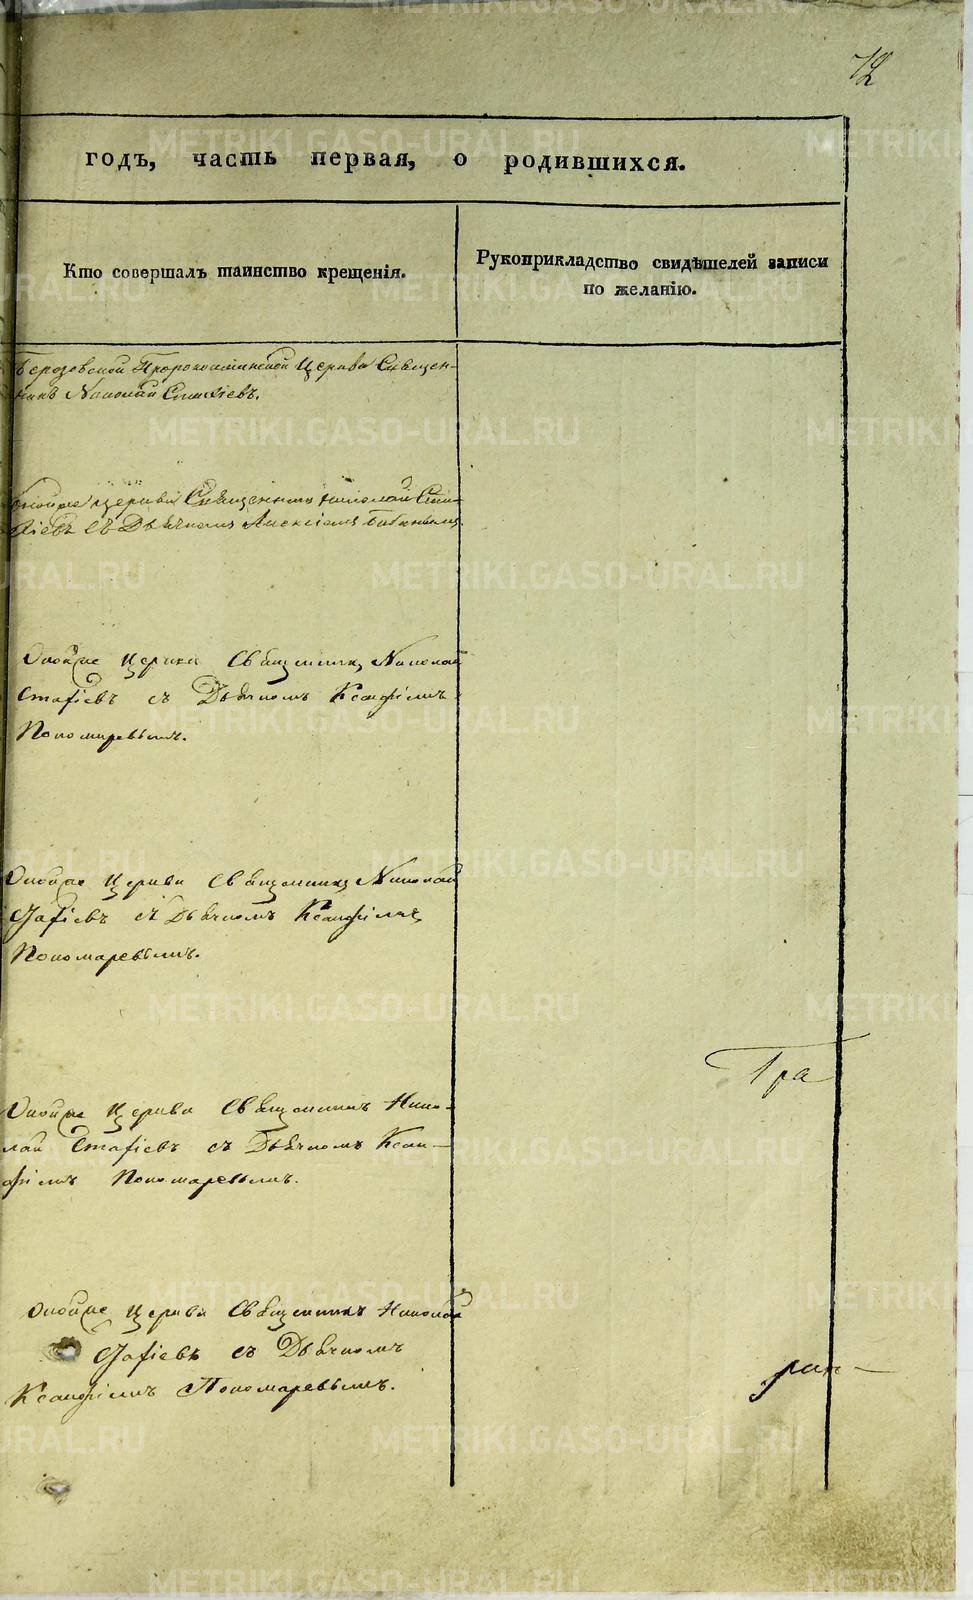 72
годъ, часть первая, о родившихся.
Кто совершалъ таинство крещенія.
Рукоприкладство свидѣтелей записи
по желанію.
Церкви Священ-
никъ Николай
Церкви Священникъ Николай
съ Дьячкомъ Алексіемъ
Оной же Церкви Священникъ Николай
Стафіевъ съ Дьячкомъ Ксанфіемъ
Пономаревымъ.
Оной же Церкви Священникъ Николай
Стафіевъ съ Дьячкомъ Ксанфіемъ
Пономаревымъ.
Гра
Оной же Церкви Священникъ Нико-
лай Стафіевъ съ Дьячкомъ Ксан-
фіемъ Пономаревымъ.
Оной же Церкви Священникъ Николай
Стафіевъ съ Дьячкомъ
Ксанфіемъ Пономаревымъ.
METRIKI.GASO-URAL.RU